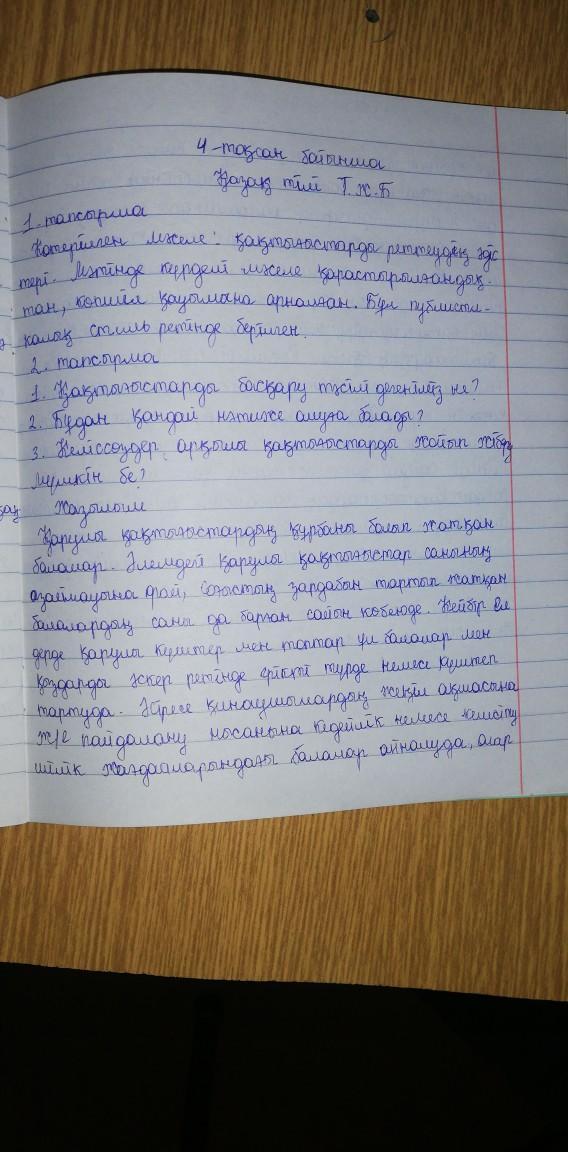 4-тоқсан бойынша
Қазақ тілі Т.Ж.Б
1. тапсырма
Көтерілген мәселе: қақтығыстарды реттеудің әдіс
тері. Мәтінде күрделі мәселе қарастырылғандық-
тан, көпшіл қауымына арналған. Бұл публисти-
калық стиль ретінде берілген.
2. тапсырма
1. Қақтығыстарды басқару тәсілі дегеніміз не?
2. Бұдан қандай нәтиже алуға болады?
3. Келіссөздер арқылы қақтығыстарды жойып жіберу
мүмкін бе?
Жазылым
Қарулы қақтығыстардың құрбаны болып жатқан
балалар. Әлемдегі қарулы қақтығыстар санының
азаймауына орай, соғыстың зардабын тартып жатқан
балалардың саны да барған сайын көбеюде. Кейбір ел
дерде қарулы күштер мен топтар ұл балалар мен
қыздарды әскер ретінде ерікті түрде немесе күштеп
тартуда. Әсіресе қинаушылардың жеңіл ақшасына
ж/е пайдалану нысанына кедейлік немесе кемсіту
шілік жағдайларындағы балалар айналуда, олар